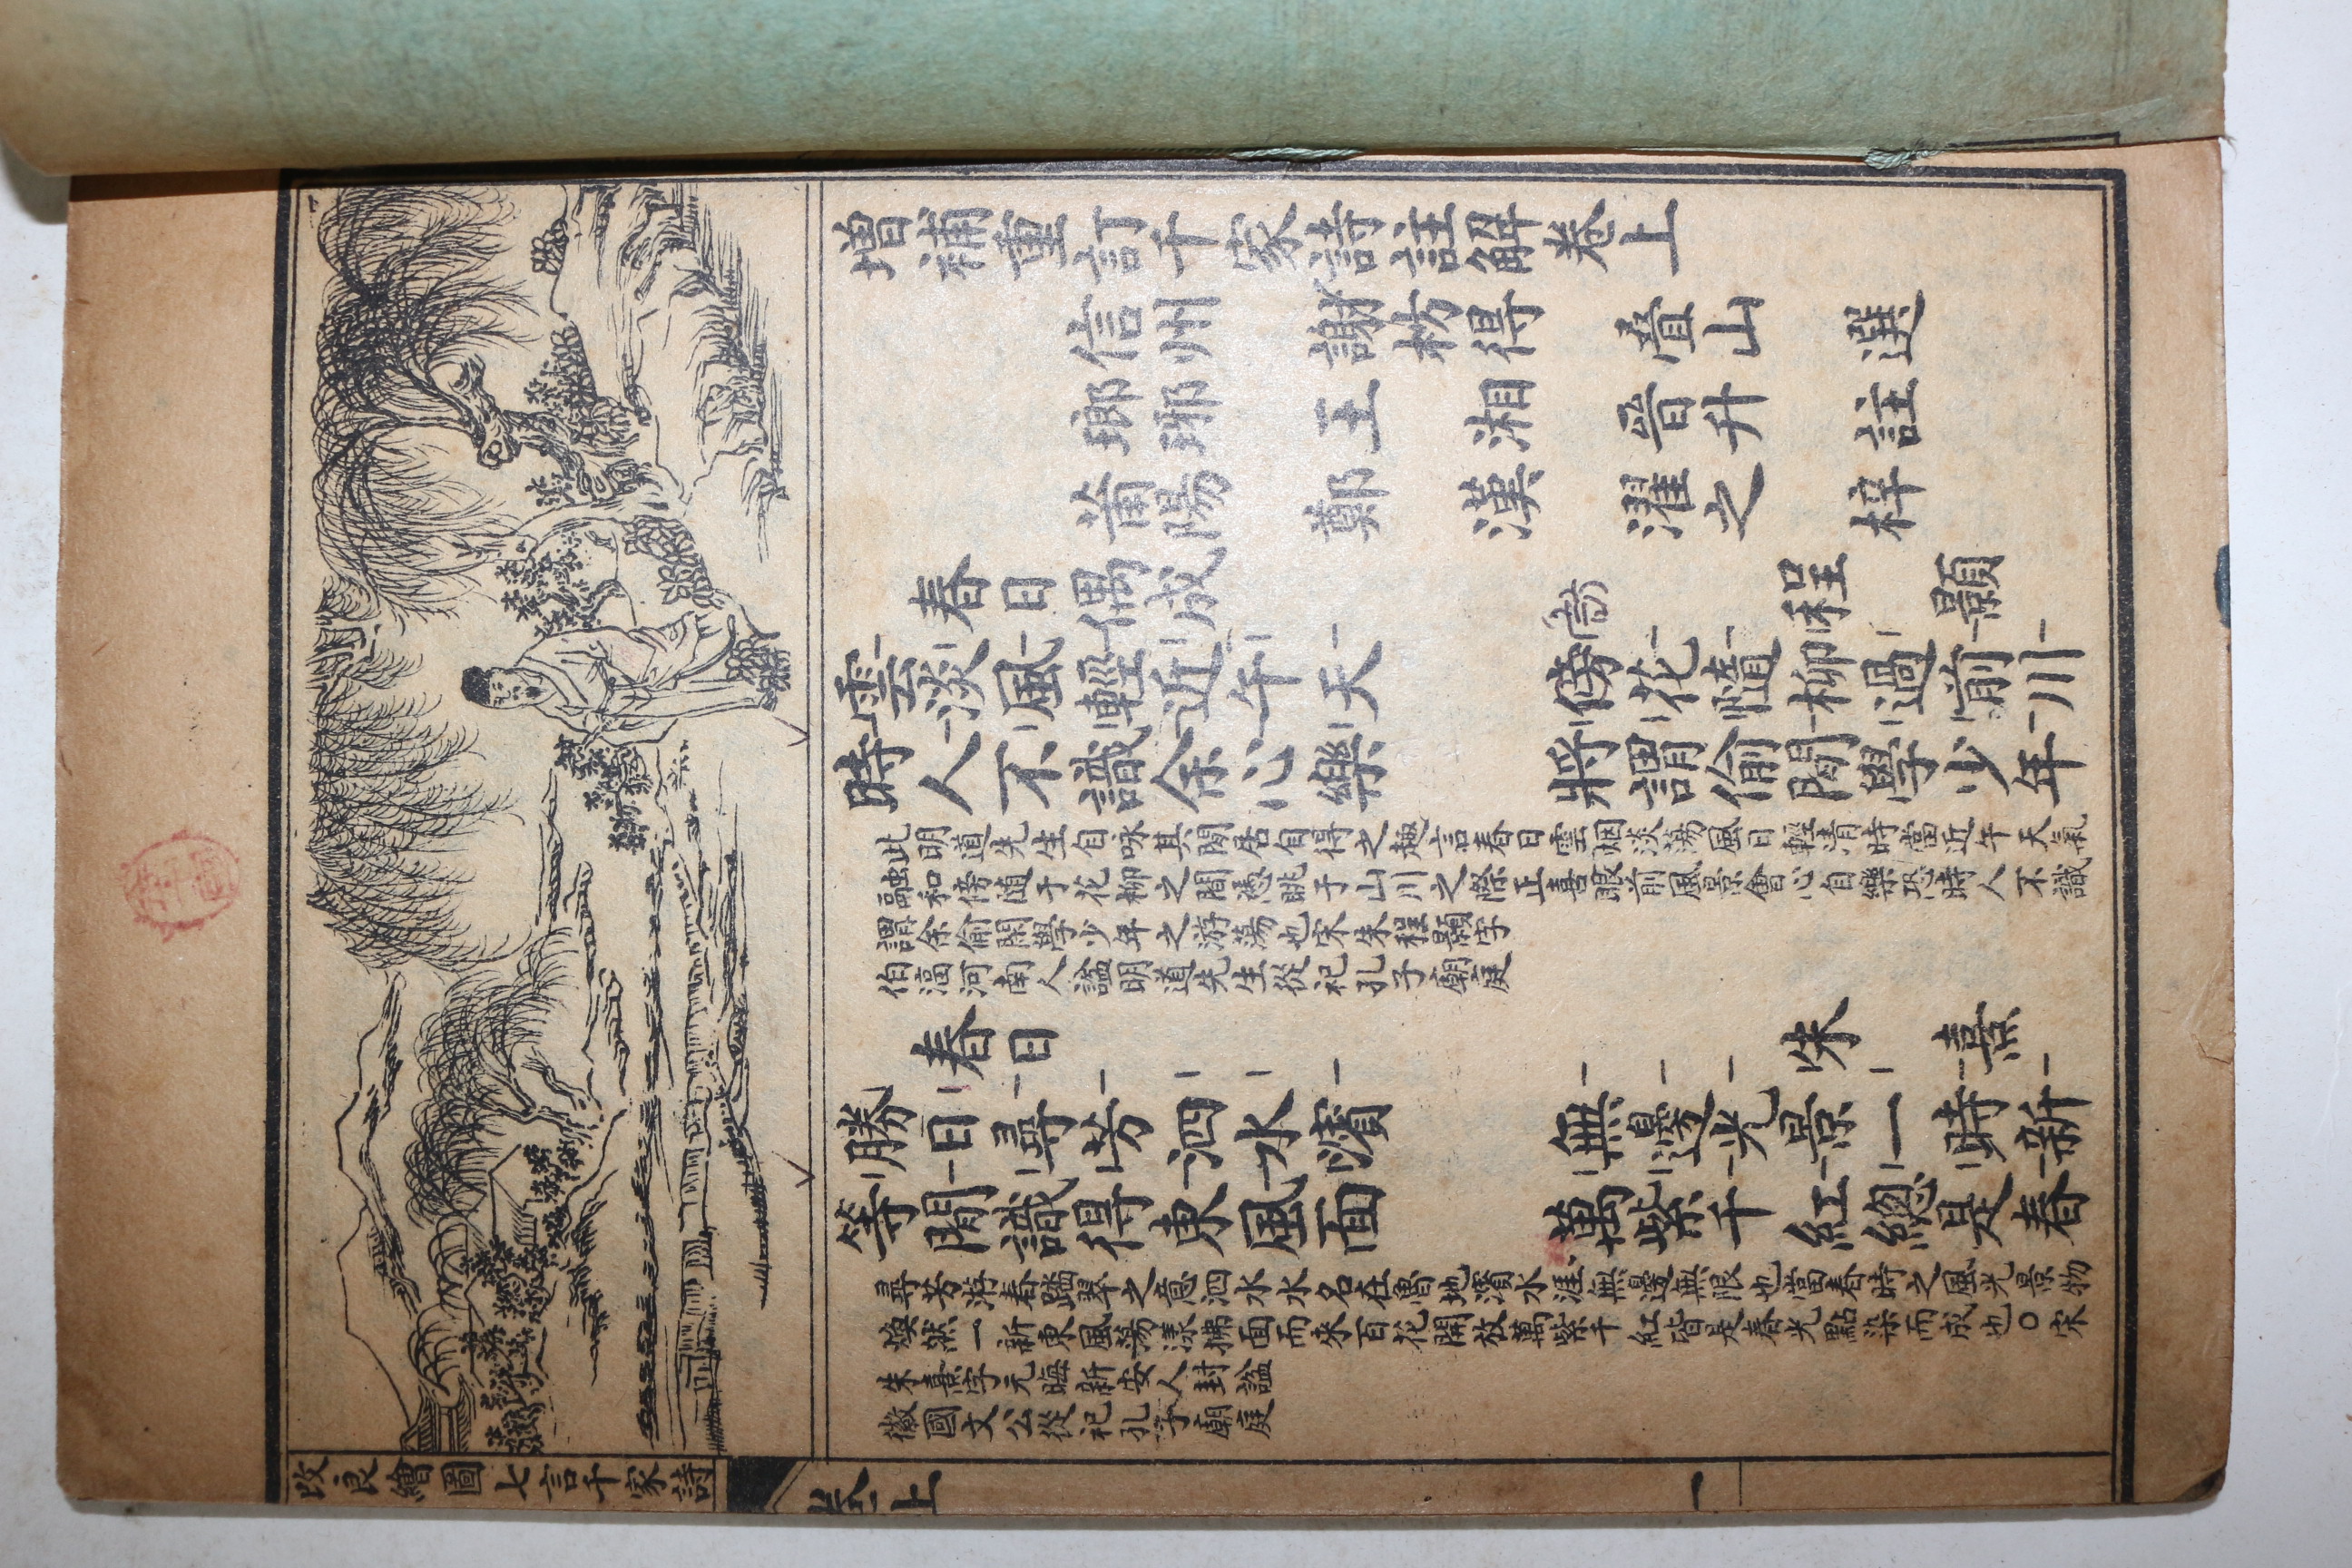 增補重訂千家詩註解卷上
信州 謝枋得 疊山 選
瑯琊 王 湘 晉升 註
莆陽 鄭 漢 濯之 梓
春日偶成 程 顥
雲淡風輕近午天 傍花隨柳過前川
時人不識余心樂 將謂偷閒學少年
此明道先生自咏其閒居自得之趣言春日雲烟淡蕩風日輕清時當近午天氣
融和傍隨于花柳之間憑眺于山川之際正喜眼前風景會心自樂恐時人不識
謂余偷閑學少年之游蕩也宋朱程顥字
伯淳河南人謚明道先生從祀孔子廟庭
春日 朱 熹
勝日尋芳泗水濱 無邊光景一時新
等閒識得東風面 萬紫千紅總是春
尋芳游春踏翠之意泗水水名在魯地濱水涯無邊無限也當春時之風光景物
煥然一新東風蕩漾拂面而來百花開放萬紫千紅皆是春光點染而成也○宋
朱熹字元晦新安人封謚
徽國文公從祀孔子廟庭
改良繪圖七言千家詩
卷上
一